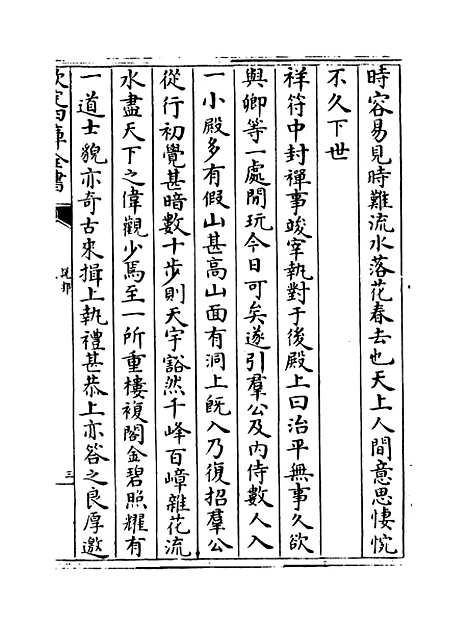 時容易見時難流水落花春去也天上人間意思悽惋
不久下世
祥符中封禪事竣宰執對于後殿上曰治平無事久欲
與卿等一處閒玩今日可矣遂引羣公及内侍數人入
一小殿多有假山甚高山面有洞上旣入乃復招羣公
從行初覺甚暗數十步則天宇豁然千峰百嶂雜花流
水盡天下之偉觀少焉至一所重樓複閣金碧照耀有
一道士貌亦竒古來揖上執禮甚恭上亦答之良厚邀
欽定四庫全書
説郛
三